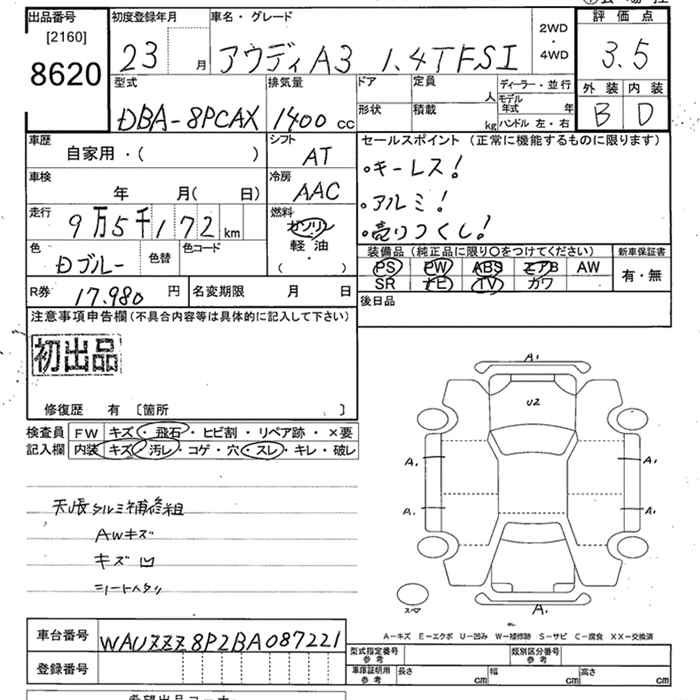 出品番号 初度登録年月 車名・グレード 2WD・4WD 評価点
[2160]
8620 23 月 アウディA3 1.4TFSI 3.5
型式 排気量 ドア 定員 人 ディーラー・並行 外装 内装
DBA-8PCAX 1400 cc 形状 積載 kg モデル年式 年 ハンドル 左・右 B D
車歴 シフト セールスポイント (正常に機能するものに限ります)
自家用・( ) AT
•キーレス!
車検 冷房
年 月( 日) AAC •アルミ!
走行 燃料
9万5千172km ガソリン •売りつくし!
色 色替 色コード 軽油 装備品 (純正品に限り○をつけてください) 新車保証書
Dブルー ・ ( ) PS PW ABS エアB AW 有・無
R券 17,980 円 名変期限 月 日 SR ナビ TV カワ
注意事項申告欄(不具合内容等は具体的に記入して下さい) 後日品
初出品
修復歴 有 [箇所 ]
検査員 FW キズ・飛石・ヒビ割・リペア跡・×要
記入欄 内装 キズ・汚レ・コゲ・穴・スレ・キレ・破レ
天張タルミ補修粗
AWキズ
キズ凹
シートヘタリ
A1
U2
A1 A1
A1 A1
スペア A1
A-キズ E-エクボ U-凹み W-補修跡 S-サビ C-腐食 XX-交換済
車台番号 WAUZZZ8P2BA087221
型式指定番号 参考 類別区分番号 参考
登録番号 車庫証明用 参考 長さ cm 幅 cm 高さ cm
希望出品コーナー